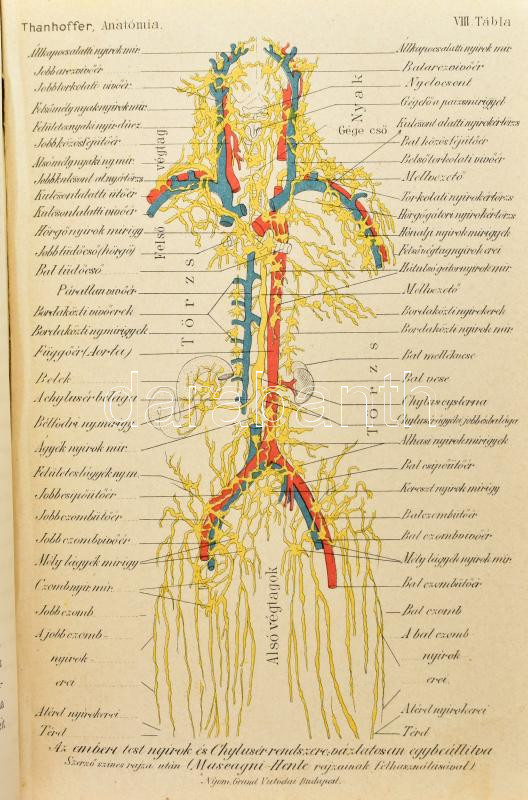 Thanhoffer, Anatómia.
VIII. Tábla
Állkapocsalatti nyirok mir.
Jobb arczvivőér
Jobb torkolati vivőér
Felső mély nyaknyirok mir.
Jobb közös fejütőér
Alsó mély nyaki ny. mir.
Kulcsontalatti ütőér
Kulcsontalatti vivőér
Hörgő nyirok mirigy
Jobb tüdőcső (hörgő)
Bal tüdőcső
Páratlan vivőér
Bordaközti vivőerek
Bordaközti ny. mirigyek
Függőér (Aorta)
Belek
A chylusér belága
Bélfodri ny. mirigy
Ágyék nyirok mir.
Felületes lágyék ny. m.
Jobb csipőütőér
Jobb czombütőér
Jobb czombvivőér
Mély lágyék mirigy
Czombnyir. mir.
Jobb czomb
A jobb czomb
nyirok
erei
Atérd nyirokerei
Térd
Felső végtag
Törzs
Nyak
Gége cső
Törzs
Alsó végtagok
Állkapocsalatti nyirok mir.
Bal arczvivőér
Nyelvcsont
Gégefő a paizsmirigygyel
Kulcsont alatti nyirokértörzs
Bal közös fejütőér
Belső torkolati vivőér
Mellvezető
Torkolati nyirokértörzs
Hörgőgátori nyirokértörzs
Hónalji nyirok mirigyek
Felső végtag nyirok erei
Hátulsó gátor nyirok mir.
Mellvezető
Bordaközti nyirokerek
Bordaközti nyirok mir.
Bal mellékvese
Bal vese
Chylus cysterna
Alhasi nyirok mirigyek
Bal csipőütőér
Kereszt nyirok mirigy
Bal czombütőér
Bal czombvivőér
Mély lágyék nyirok mir.
Bal czombütőér
Bal czomb
A bal czomb
nyirok
erei
Atérd nyirokerei
Térd
Az emberi test nyirok és Chylusér rendszere, vázlatosan egybeállitva
Szerző szines rajza után (Mascagni-Henle rajzainak felhasználásával)
Nyom. Grund V. utódai Budapest.
darabanth